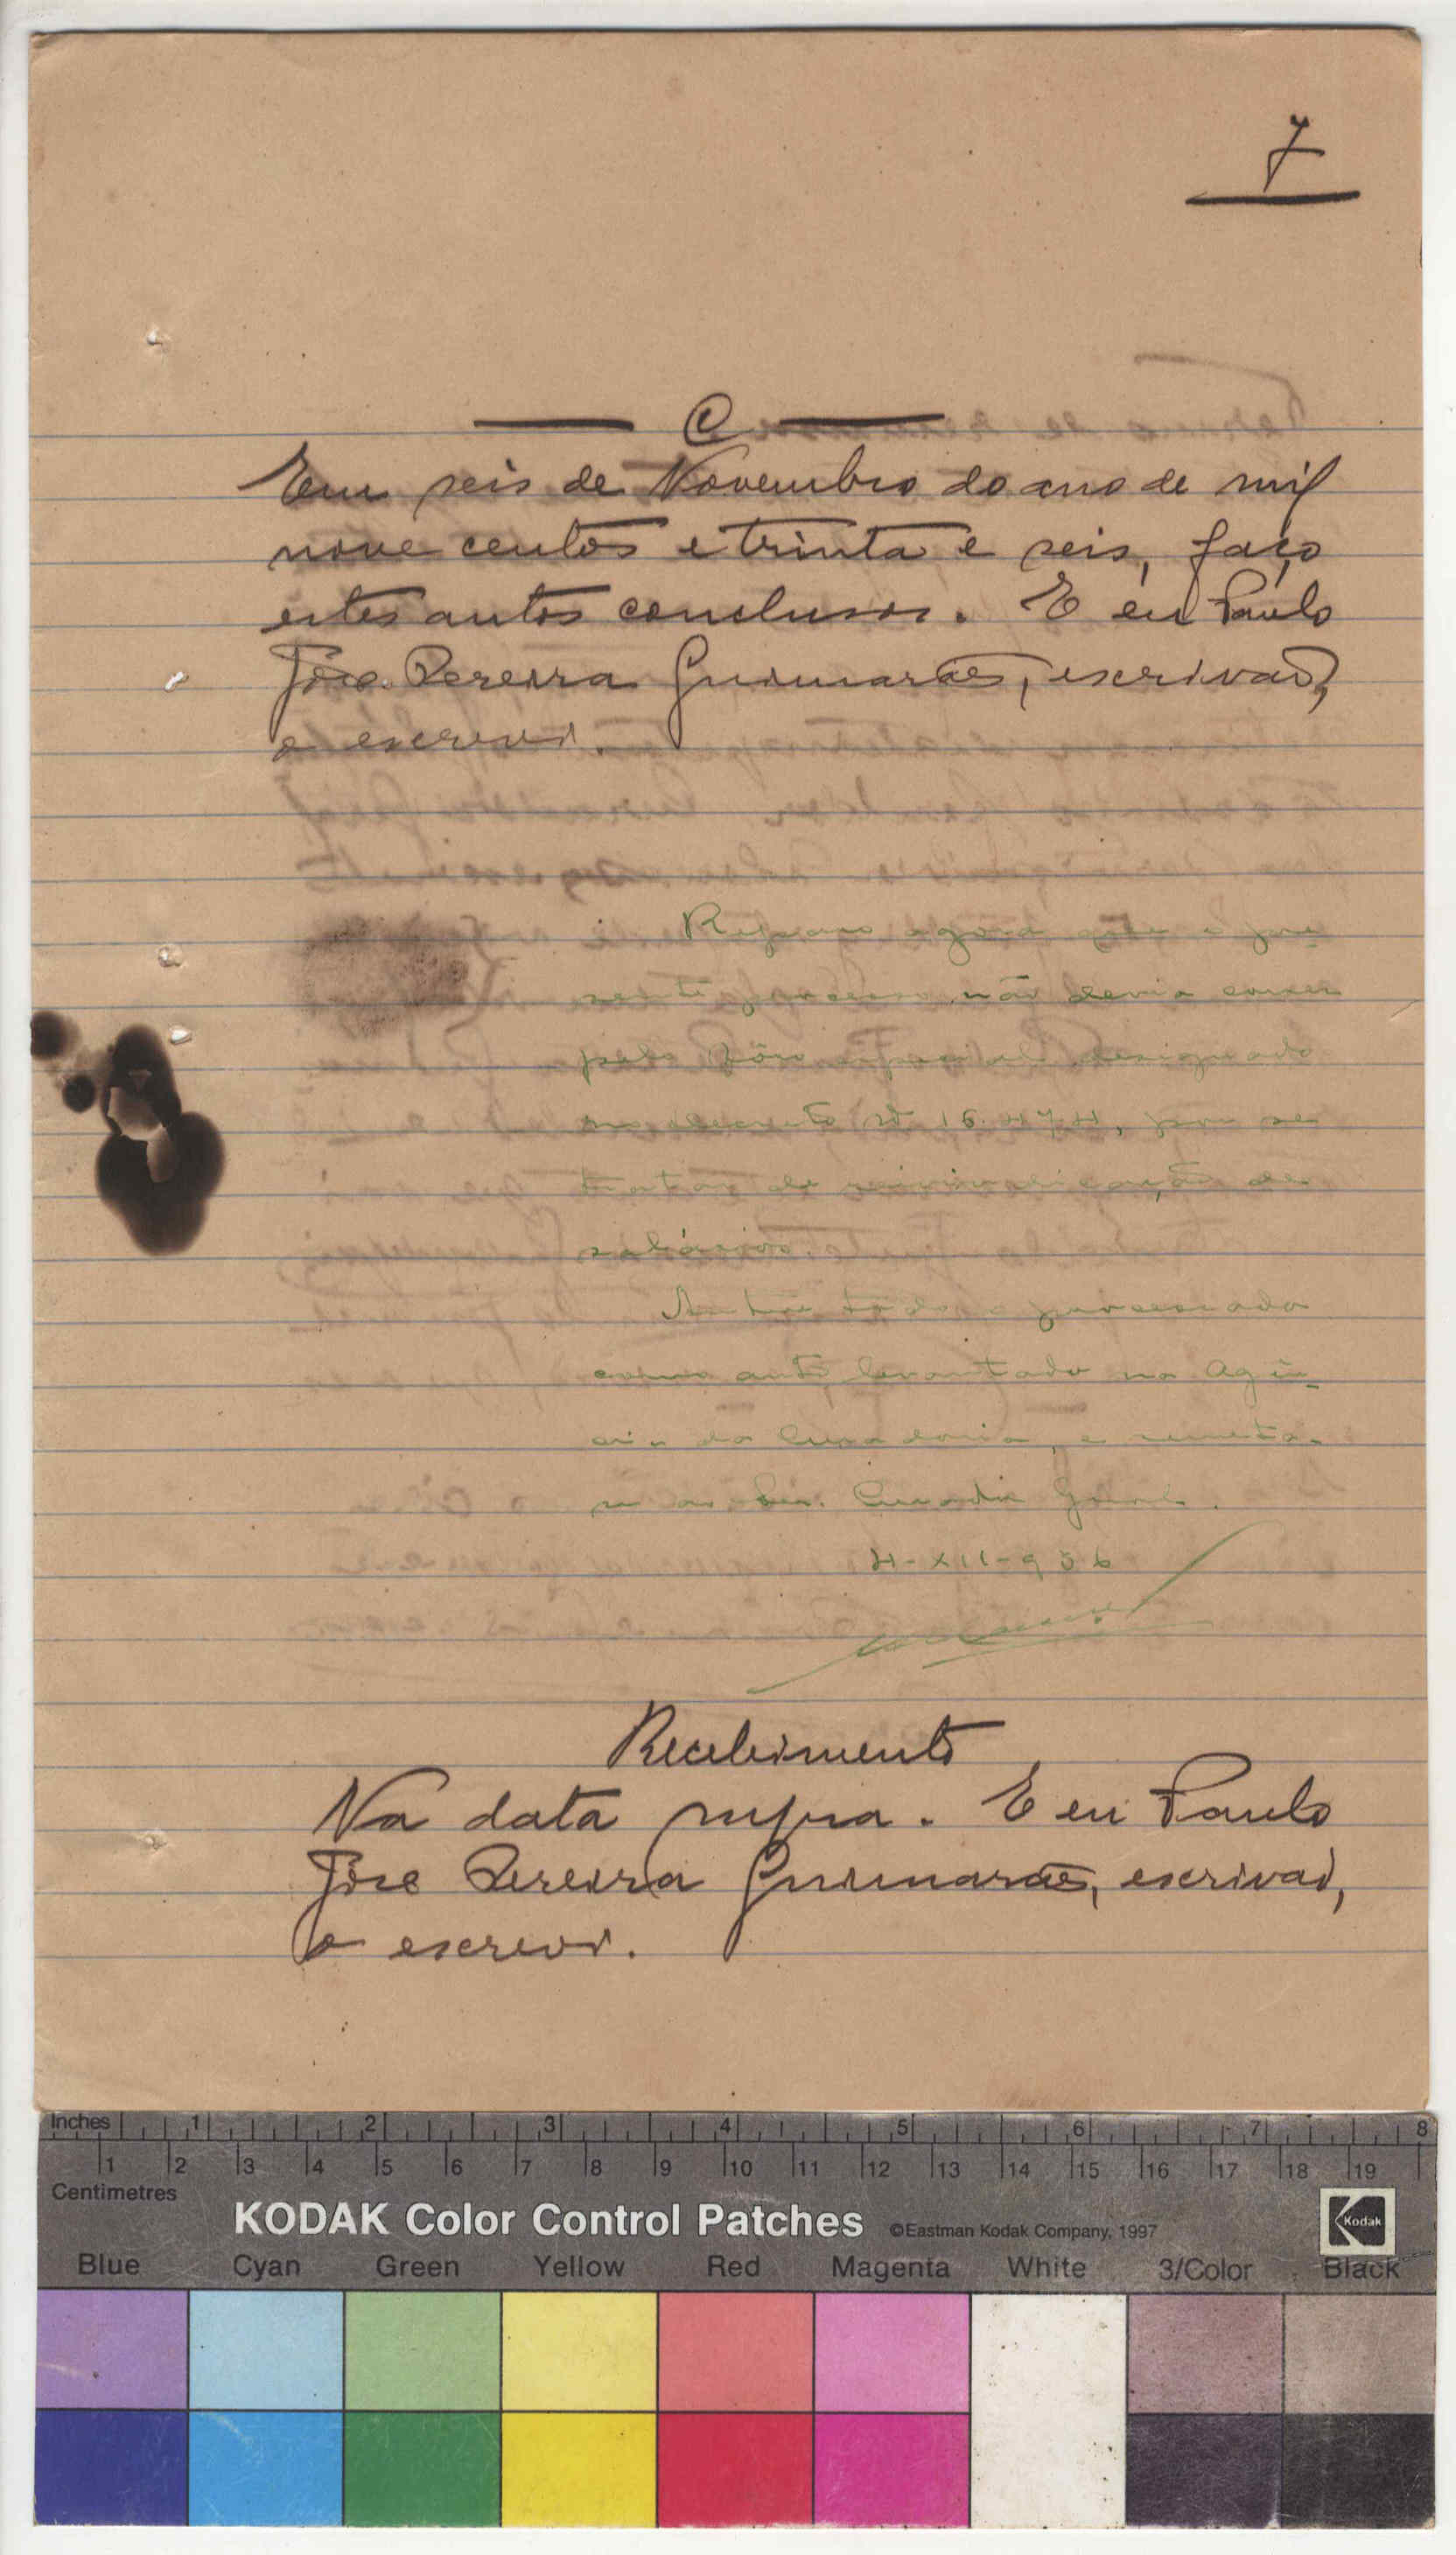 7
C
Em seis de Novembro do ano de mil
nove centos e trinta e seis, faço
estes autos conclusos. E eu Paulo
José Pereira Guimarães, escrivão,
o escrevi.
Reparo agora que o pre
sente processo não devia correr
pelo fôro especial designado
no decreto nº 16.474, por se
tratar de reivindicação de
salários.
todo o processado
como auto levantado na Agên
cia da Curadoria, e remeta-
se ao Snr. Curador Geral.
4-XII-936
Recebimento
Na data supra. E eu Paulo
José Pereira Guimarães, escrivão,
o escrevi.
Inches 1 2 3 4 5 6 7 8
1 2 3 4 5 6 7 8 9 10 11 12 13 14 15 16 17 18 19
Centimetres
KODAK Color Control Patches ©Eastman Kodak Company, 1997 Kodak
Blue Cyan Green Yellow Red Magenta White 3/Color Black